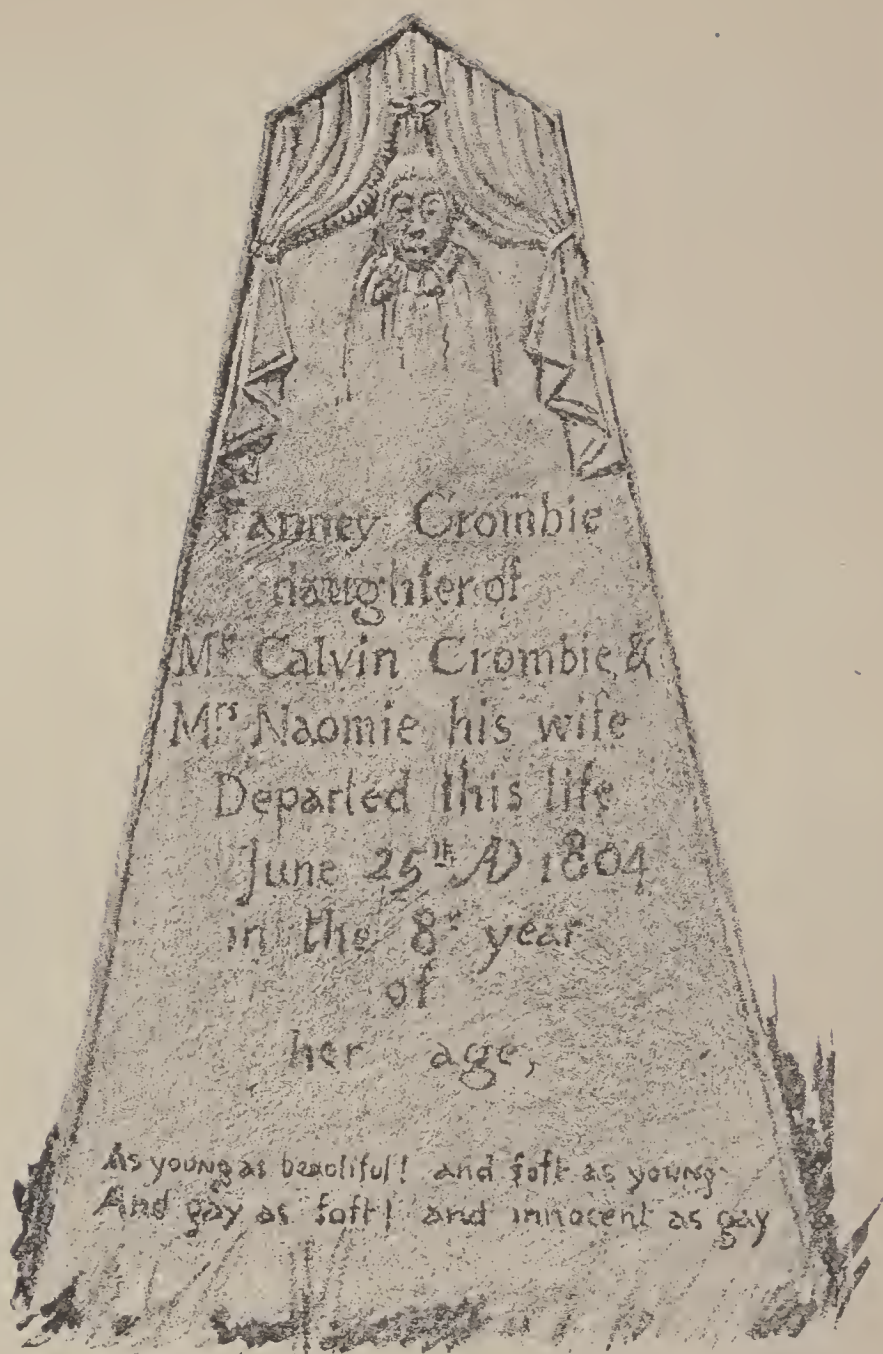 Fanney Crombie
daughter of
Mr Calvin Crombie &
Mrs Naomie his wife
Departed this life
June 25th AD 1804
in the 8th year
of
her age,
As young as beautiful! and ſoft as young
And gay as ſoft! and innocent as gay